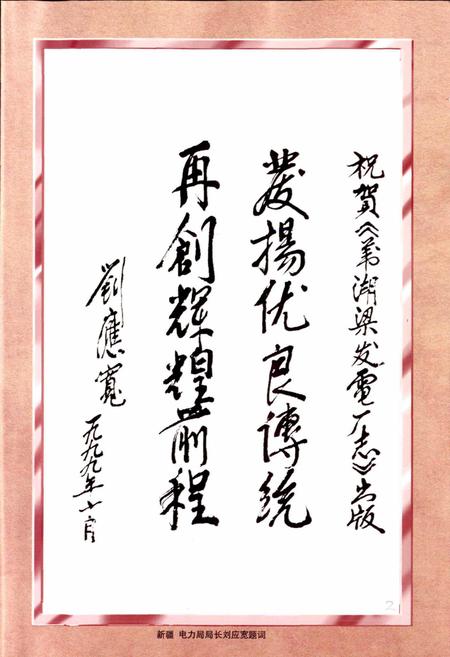 祝賀《苇湖梁发電厂志》出版
發揚优良傳統
再創輝煌前程
劉應寬
一九九九年十一月
新疆 电力局局长刘应宽题词
2